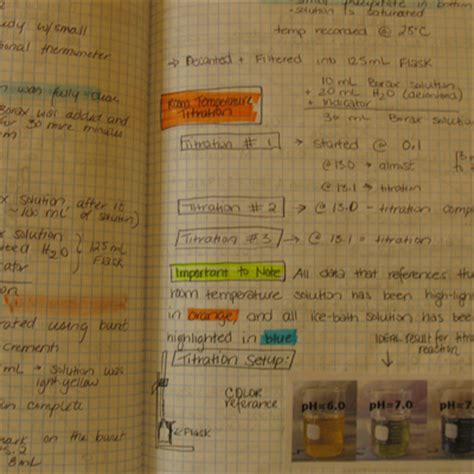 udy w/small
onal thermometer
n was fully clear
Borax was added and
for 30 more minutes
x solution, after 10
~100 mL of solution)
x solution
H₂O } 125 mL
cator Flask
on
rated using buret
crements
mL → solution was
light yellow
on complete
mark on the buret
5.2
8mL
small precipitate in bottom
- solution is saturated
temp recorded @ 25°C
→ Decanted + Filtered into 125mL Flask
10 mL Borax solution
+ 20 mL H₂O (deionized)
+ indicator
30 mL Borax Solution
Room Temperature
Titration
Titration # 1 → started @ 0.1
@ 13.0 → almost
@ 13.1 → titration
Titration # 2 → @ 13.0 - titration comple
Titration # 3 → @ 13.1 = titration
Important to Note All data that references the
room temperature solution has been high-ligh
in orange, and all ice-bath solution has been
highlighted in blue
Titration Setup:
IDEAL result for titra
reaction
COLOR
referance
← Flask
pH=6.0
pH=7.0
pH=